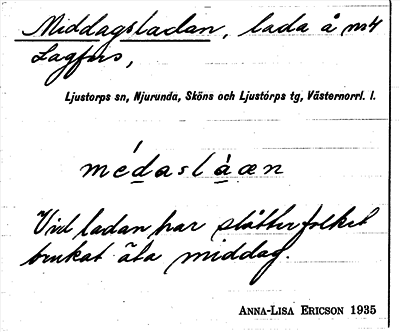 Middagsladan, lada å nr 4
Lagfors,
Ljustorps sn, Njurunda, Sköns och Ljustorps tg, Västernorrl. l.
médaslàæn
Vid ladan har slåtterfolket
brukat äta middag.
ANNA-LISA ERICSON 1935